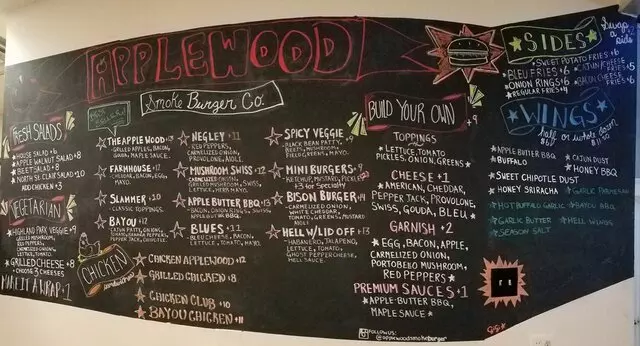 APPLEWOOD
Smoke Burger Co.
FRESH SALADS
★HOUSE SALAD •6
★APPLE WALNUT SALAD •8
★BEET SALAD •8
★NORTH ST. CLAIR SALAD •10
ADD CHICKEN •3
VEGETARIAN
★HIGHLAND PARK VEGGIE •9
GRILLED MUSHROOM,
RED PEPPERS,
CARMELIZED ONIONS,
LETTUCE, TOMATO
★GRILLED CHEESE •8
CHOOSE 3 CHEESES
MAKE IT A WRAP •1
★THE APPLEWOOD •13
GRILLED APPLES, BACON,
GOUDA, MAPLE SAUCE.
★FARMHOUSE •12
CHEDDAR, BACON, EGG,
MAYO.
★SLAMMER •10
CLASSIC TOPPINGS.
★BAYOU •12
CAJUN PATTY, ONIONS,
PEPPER JACK, CHIPOTLE.
CHICKEN
★CHICKEN APPLEWOOD •12
★GRILLED CHICKEN •8
★CHICKEN CLUB •10
★BAYOU CHICKEN •11
★NEGLEY •11
RED PEPPERS,
CARMELIZED ONION,
PROVOLONE, AIOLI.
★MUSHROOM SWISS •12
CARMELIZED ONION,
GRILLED MUSHROOM, SWISS,
LETTUCE, HERB MAYO.
★APPLE BUTTER BBQ •13
BACON, ONION RINGS, SWISS,
★BLUES •11
BLEU CHEESE, BACON,
LETTUCE, TOMATO, MAYO.
★SPICY VEGGIE •9
BLACK BEAN PATTY,
BEETS, MUSHROOM,
FIELD GREENS, MAYO.
★MINI BURGERS •9
KETCHUP, MUSTARD, PICKLES
+3 for Specialty
★BISON BURGER •14
CARMELIZED ONION,
WHITE CHEDDAR,
TOMATO, GREENS, MUSTARD
★HELL W/ LID OFF •13
HABANERO, JALAPENO,
LETTUCE, TOMATO,
GHOST PEPPER CHEESE,
HELL SAUCE.
BUILD YOUR OWN •9
TOPPINGS
★LETTUCE, TOMATO,
PICKLES, ONION, GREENS★
CHEESE •1
★AMERICAN, CHEDDAR,
PEPPER JACK, PROVOLONE,
SWISS, GOUDA, BLEU★
GARNISH •2
★EGG, BACON, APPLE,
CARMELIZED ONION,
PORTOBELLO MUSHROOM,
RED PEPPERS★
PREMIUM SAUCES •1
★APPLE-BUTTER BBQ,
MAPLE SAUCE★
FOLLOW US:
@applewoodsmokeburger
★SIDES★
Swap a side
★SWEET POTATO FRIES •6
★BLEU FRIES •6
★CAJUN CHEESE FRIES •5
★ONION RINGS •6
★BACON CHEESE FRIES •6
★REGULAR FRIES •4
★WINGS★
half or whole dozen
$6 $11.50
★APPLE BUTTER BBQ
★BUFFALO
★CAJUN DUST
★HONEY BBQ
★SWEET CHIPOTLE DUST
★HONEY SRIRACHA
★GARLIC PARMESAN
★HOT BUFFALO GARLIC
★BAYOU BBQ
★GARLIC BUTTER
★HELL WINGS
★SEASON SALT